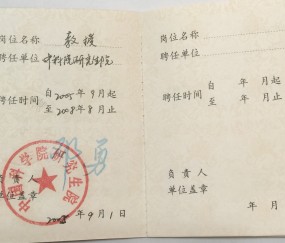 岗位名称 教授
聘任单位 中科院研究生院
聘任时间 自2005年9月起
至2008年8月止
负责人
单位盖章
2005年9月1日
中国科学院研究生院
岗位名称
聘任单位
聘任时间 自 年 月起
至 年 月止
负责人
单位盖章
年 月